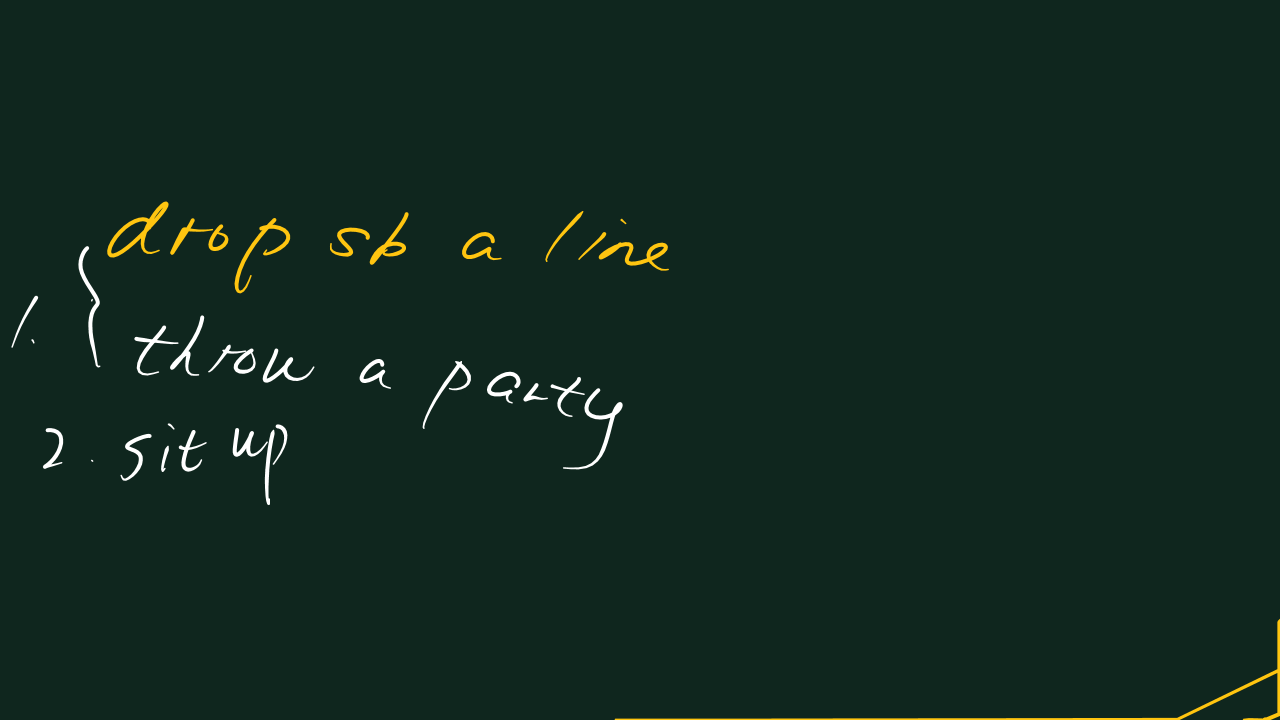 drop sb a line
1. { throw a party
2. sit up